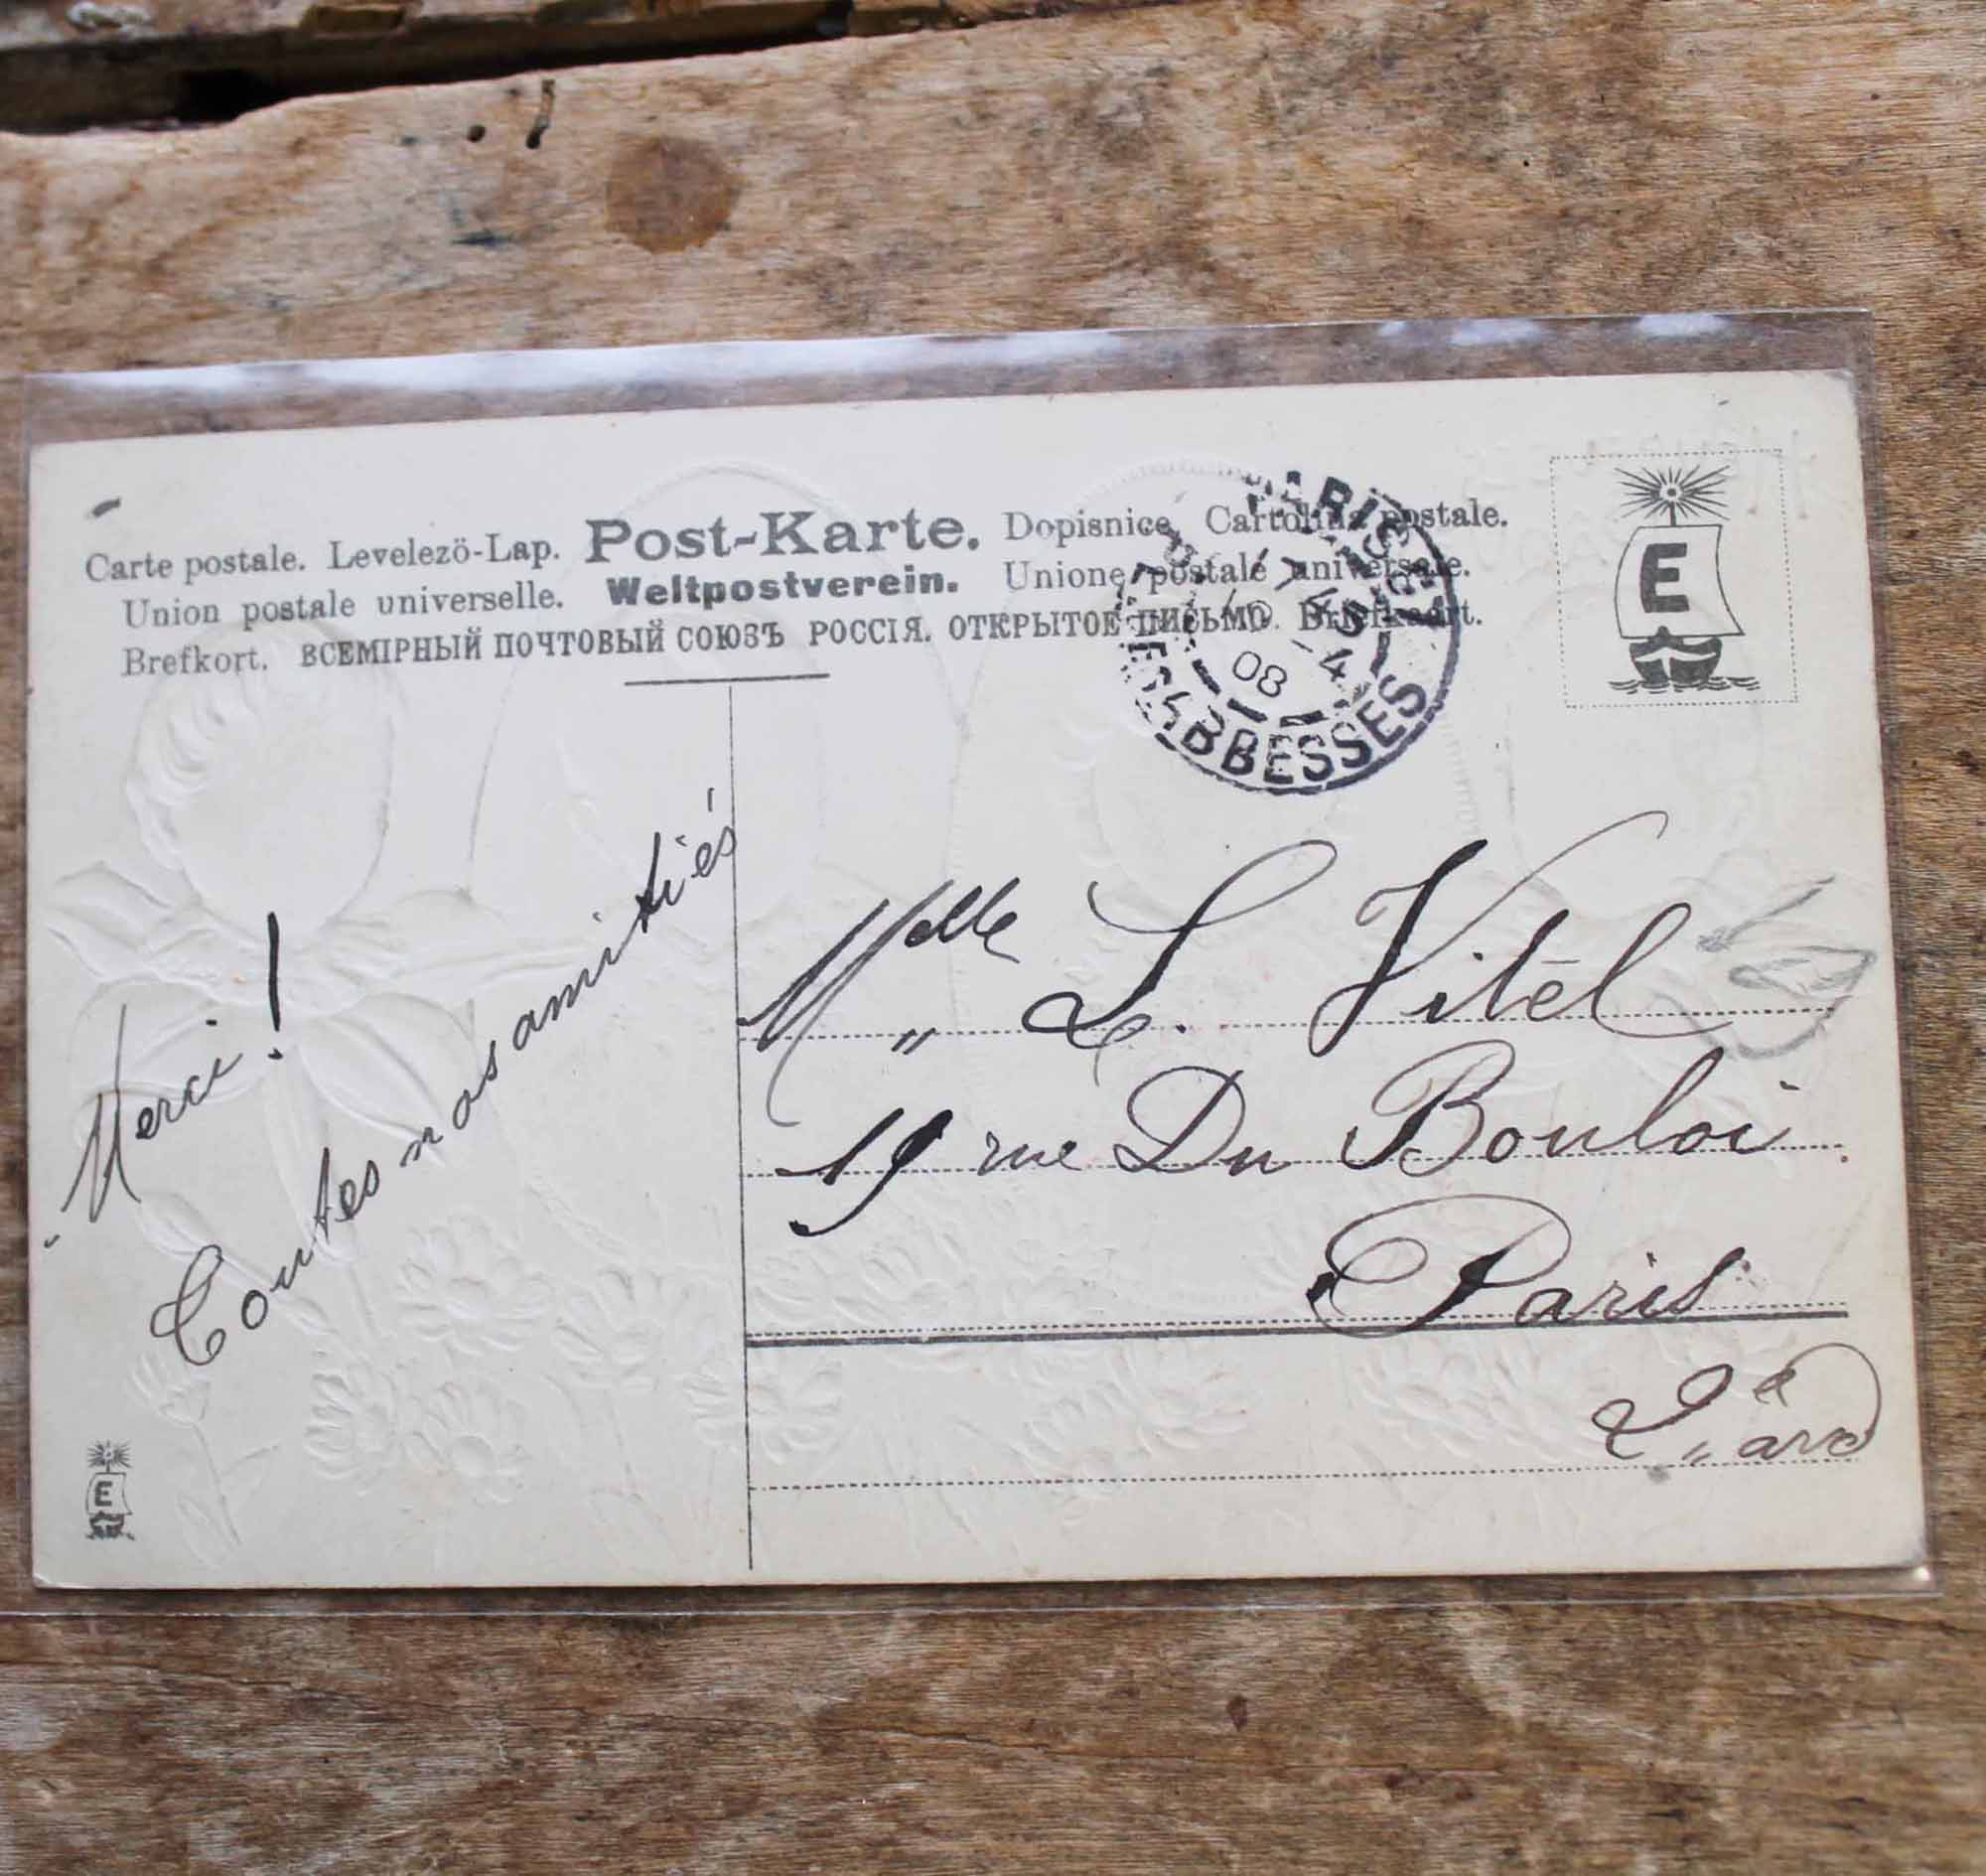 Carte postale. Levelezö-Lap. Post-Karte. Dopisnice, Cartolina postale.
Union postale universelle. Weltpostverein. Unione postale universale.
Brefkort. ВСЕМIРНЫЙ ПОЧТОВЫЙ СОЮЗЪ РОССIЯ. ОТКРЫТОЕ ПИСЬМО. Briefkaart.
PARIS
08
ABBESSES
E
Merci!
Toutes nos amitiés
Melle L. Vitel
19 rue Du Bouloi
Paris
E